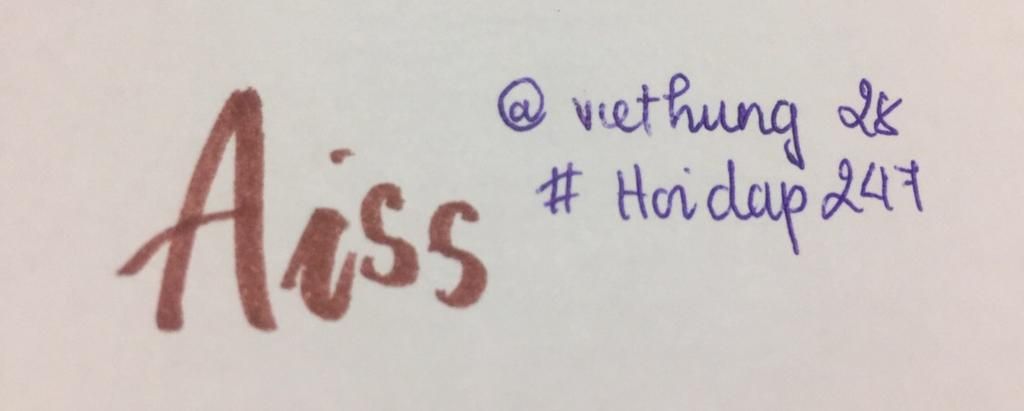 Aiss
@ viethung 28
# Hoidap 247